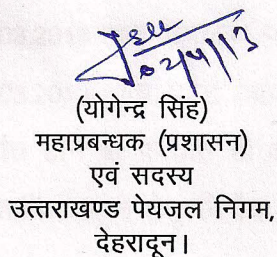 02/4/13
(योगेन्द्र सिंह)
महाप्रबन्धक (प्रशासन)
एवं सदस्य
उत्तराखण्ड पेयजल निगम,
देहरादून।